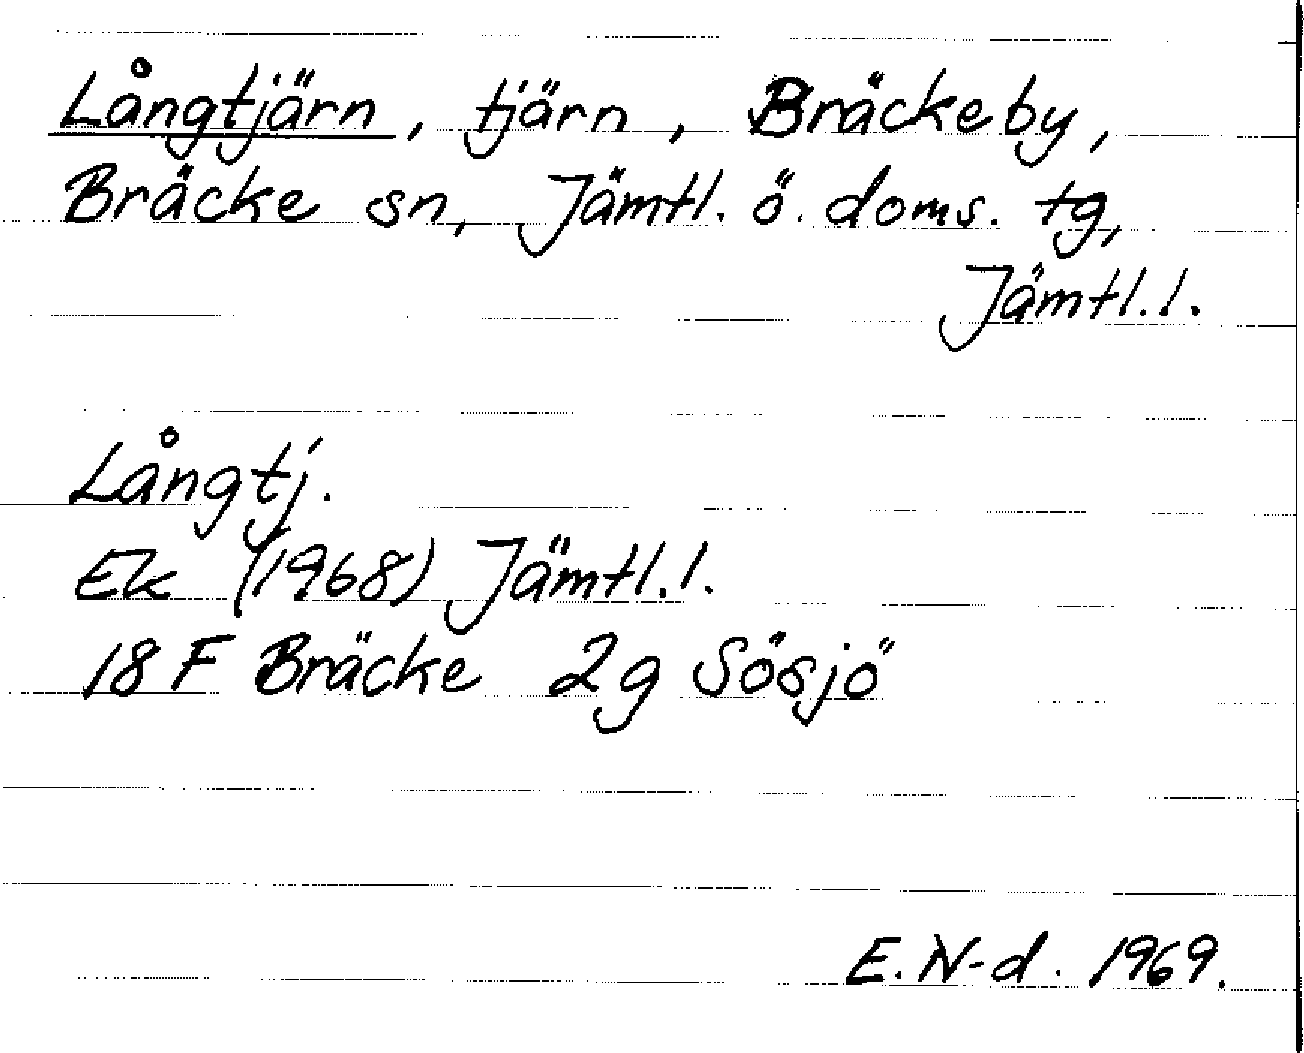 Långtjärn, tjärn, Bräckeby,
Bräcke sn, Jämtl. ö. doms. tg,
Jämtl.l.
Långtj.
Ek (1968) Jämtl.l.
18 F Bräcke 2g Sösjö
E. N-d. 1969.